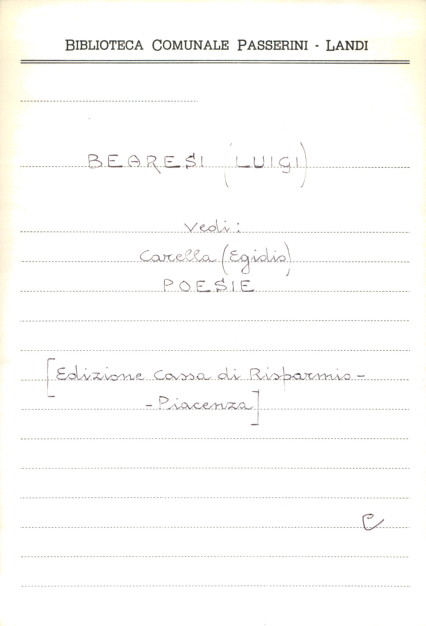 BIBLIOTECA COMUNALE PASSERINI - LANDI
BEARESI (LUIGI)
Vedi:
Carella (Egidio)
POESIE
[Edizione Cassa di Risparmio -
- Piacenza]
C